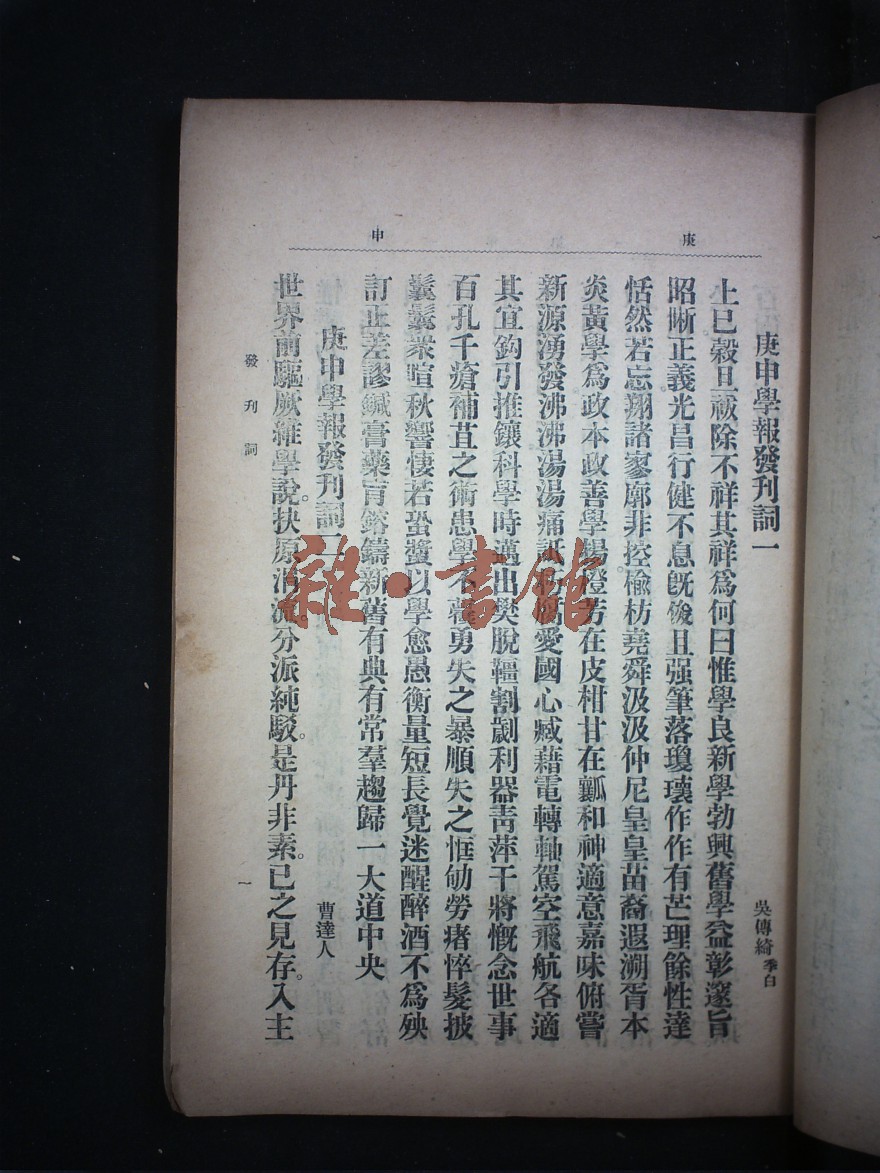 庚申
庚申學報發刊詞一
吳傳綺季白
上巳穀旦祓除不祥其祥爲何曰惟學良新學勃興舊學益彰邃旨
昭晰正義光昌行健不息旣俊且强筆落瓊瓌作作有芒理餘性達
恬然若忘翔諸寥廓非控楡枋堯舜汲汲仲尼皇皇苗裔遐溯胥本
炎黃學爲政本政善學揚燈芳在皮柑甘在瓤和神適意嘉味俯嘗
新源湧發沸沸湯湯痛 愛國心臧藉電轉軸駕空飛航各適
其宜鈎引推鑲科學時邁出樊脫韁割劙利器靑萍干將慨念世事
百孔千瘡補苴之術患學不 勇失之暴順失之恇劬勞瘏悴髮披
鬤鬤衆喧秋響悽若蛩螿以學愈愚衡量短長覺迷醒醉酒不爲殃
訂正差謬鍼膏藥肓鎔鑄新舊有典有常羣趨歸一大道中央
庚申學報發刊詞二
曹達人
世界前驅厥維學說。抉原 流。分派純駁。是丹非素。已之見存。入主
發刊詞
一
雜·書館